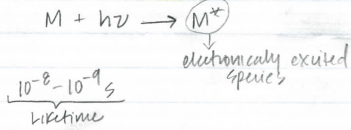 M + hν → M*
electronically excited
species
10⁻⁸-10⁻⁹ s
Lifetime